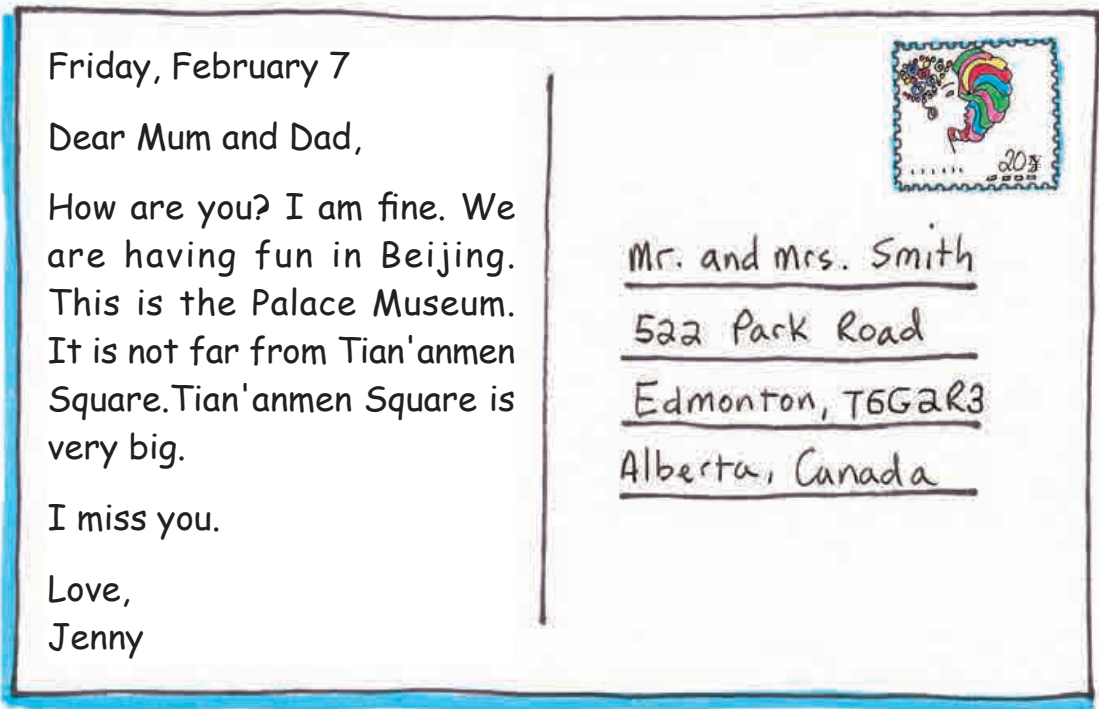 Friday, February 7
Dear Mum and Dad,
How are you? I am fine. We
are having fun in Beijing.
This is the Palace Museum.
It is not far from Tian'anmen
Square.Tian'anmen Square is
very big.
I miss you.
Love,
Jenny
Mr. and Mrs. Smith
522 Park Road
Edmonton, T6G2R3
Alberta, Canada